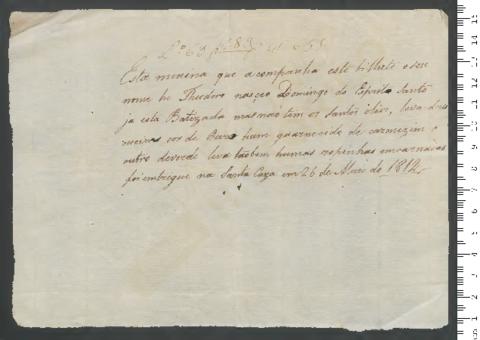 Esta menina que acompanha este bilhete o seu
nome he Theodora nasçeo Domingo do Espirito Santo
ja esta Batizada mas naõ tem os Santos olios, leva duas
cor de Barro hum guarnecido de carmezim e
outro de verde leva tãobem humas roupinhas encarnadas
foi entregue na Santa Caza em 26 de Maio de 1814